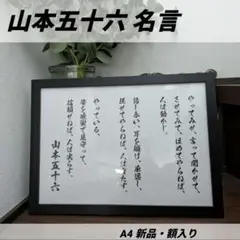 山本五十六 名言
やってみせ、言って聞かせて、
させてみて、ほめてやらねば、
人は動かじ。
話し合い、耳を傾け、承認し、
任せてやらねば、人は育たず。
やっている、
姿を感謝で見守って、
信頼せねば、人は実らず。
山本五十六
A4 新品・額入り